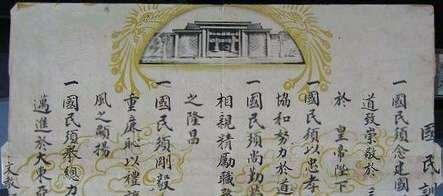 國民
一國民須念建國
道致崇敬於
於 皇帝陛下
一國民須以忠孝
協和努力於道
一國民須尚勤
相親精勵職
之隆昌
一國民須剛毅
重廉恥以禮
風之顯揚
一國民須舉總力
邁進於大東亞
文教